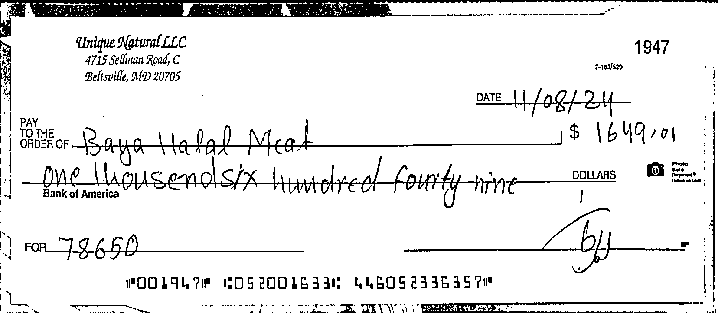 Unique Natural LLC
4715 Sellman Road, C
Beltsville, MD 20705
1947
DATE 11/08/24
PAY TO THE ORDER OF Baya Halal Meat $ 1649.01
one thousend six hundred fourity-nine DOLLARS
Bank of America
FOR 78650
⑈001947⑈ ⑆052001633⑆ 446052336357⑈